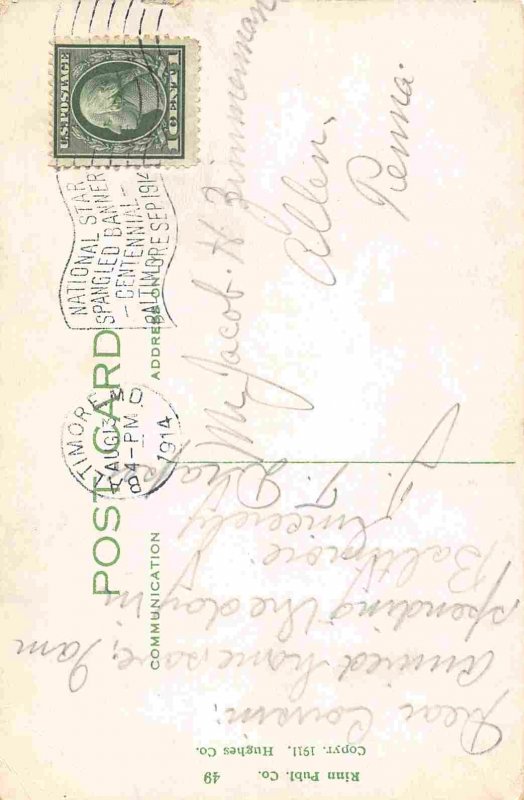 U.S. POSTAGE
1 CENT 1
NATIONAL STAR
SPANGLED BANNER
- CENTENNIAL -
BALTIMORE SEP 1914
BALTIMORE, MD
AUG 13
4-PM
1914
POST CARD
COMMUNICATION
ADDRESS ONLY
Mr Jacob. H Zimmerman
Allen,
Penna.
Dear Cousin:
arrived home safe, I am
spending the day in
Baltimore
Sincerely
49
Rinn Publ. Co.
Copyr. 1911, Hughes Co.